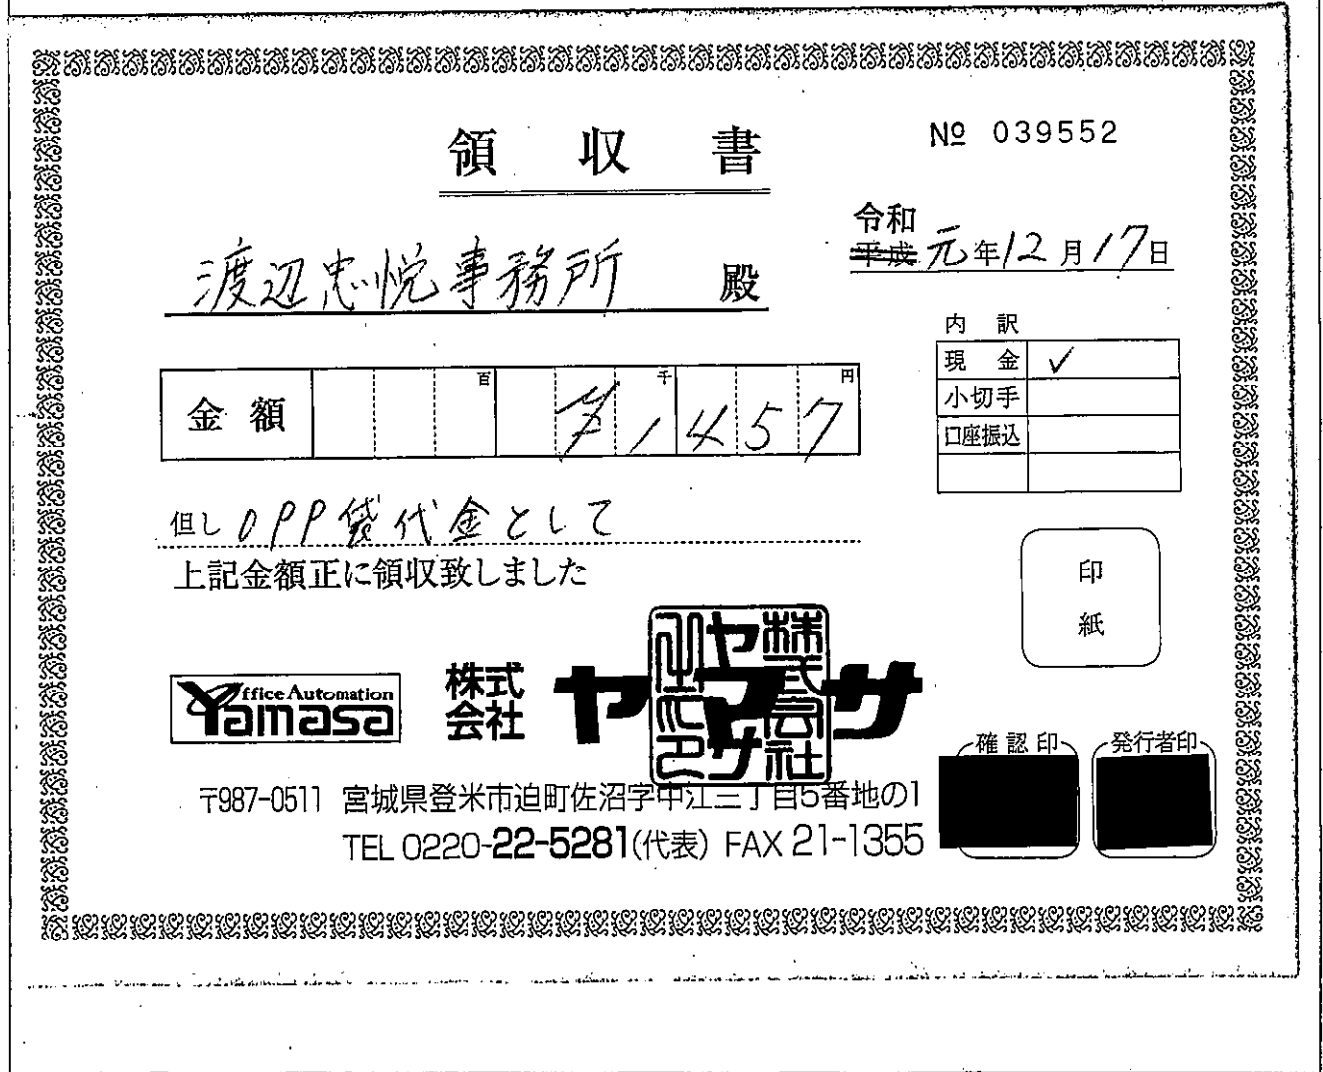 領収書
№ 039552
令和
平成元年12月17日
渡辺忠悦事務所 殿
内訳
現金 ✓
小切手
口座振込
金額 百 千 円
¥1457
但し OPP袋代金として
上記金額正に領収致しました
印
紙
Office Automation
Yamasa
株式会社 ヤマサ
株式会社
ヤマサ
〒987-0511 宮城県登米市迫町佐沼字中江三丁目5番地の1
TEL 0220-22-5281(代表) FAX 21-1355
確認印 発行者印